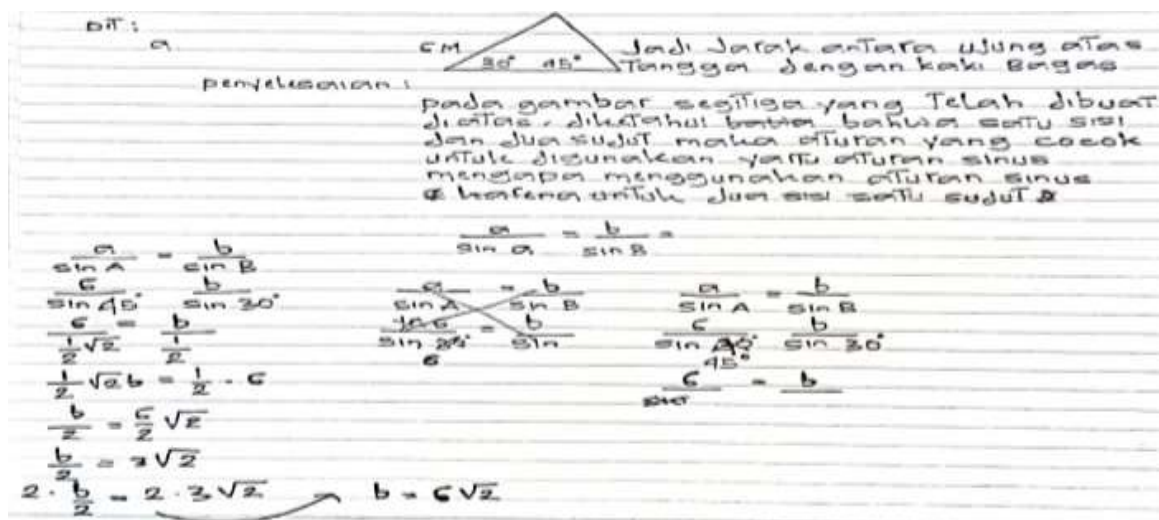 DIT :
a
6 M 30° 45° Jadi Jarak antara ujung atas
Tangga dengan kaki Bagas
penyelesaian :
pada gambar segitiga yang Telah dibuat
diatas, diketahui bahwa satu sisi
dan dua sudut maka aturan yang cocok
untuk digunakan yaitu aturan sinus
mengapa menggunakan aturan sinus
karena untuk dua sisi satu sudut
a/sin a = b/sin B =
a/sin A = b/sin B
6/sin 45° b/sin 30°
6/(1/2 √2) = b/(1/2)
1/2 √2 b = 1/2 . 6
b/2 = 6/2 √2
b/2 = 3√2
2 . b/2 = 2 . 3√2 b = 6√2
a/sin A = b/sin B
= b/sin
6
a/sin A = b/sin B
6/sin 45° b/sin 30°
6 = b